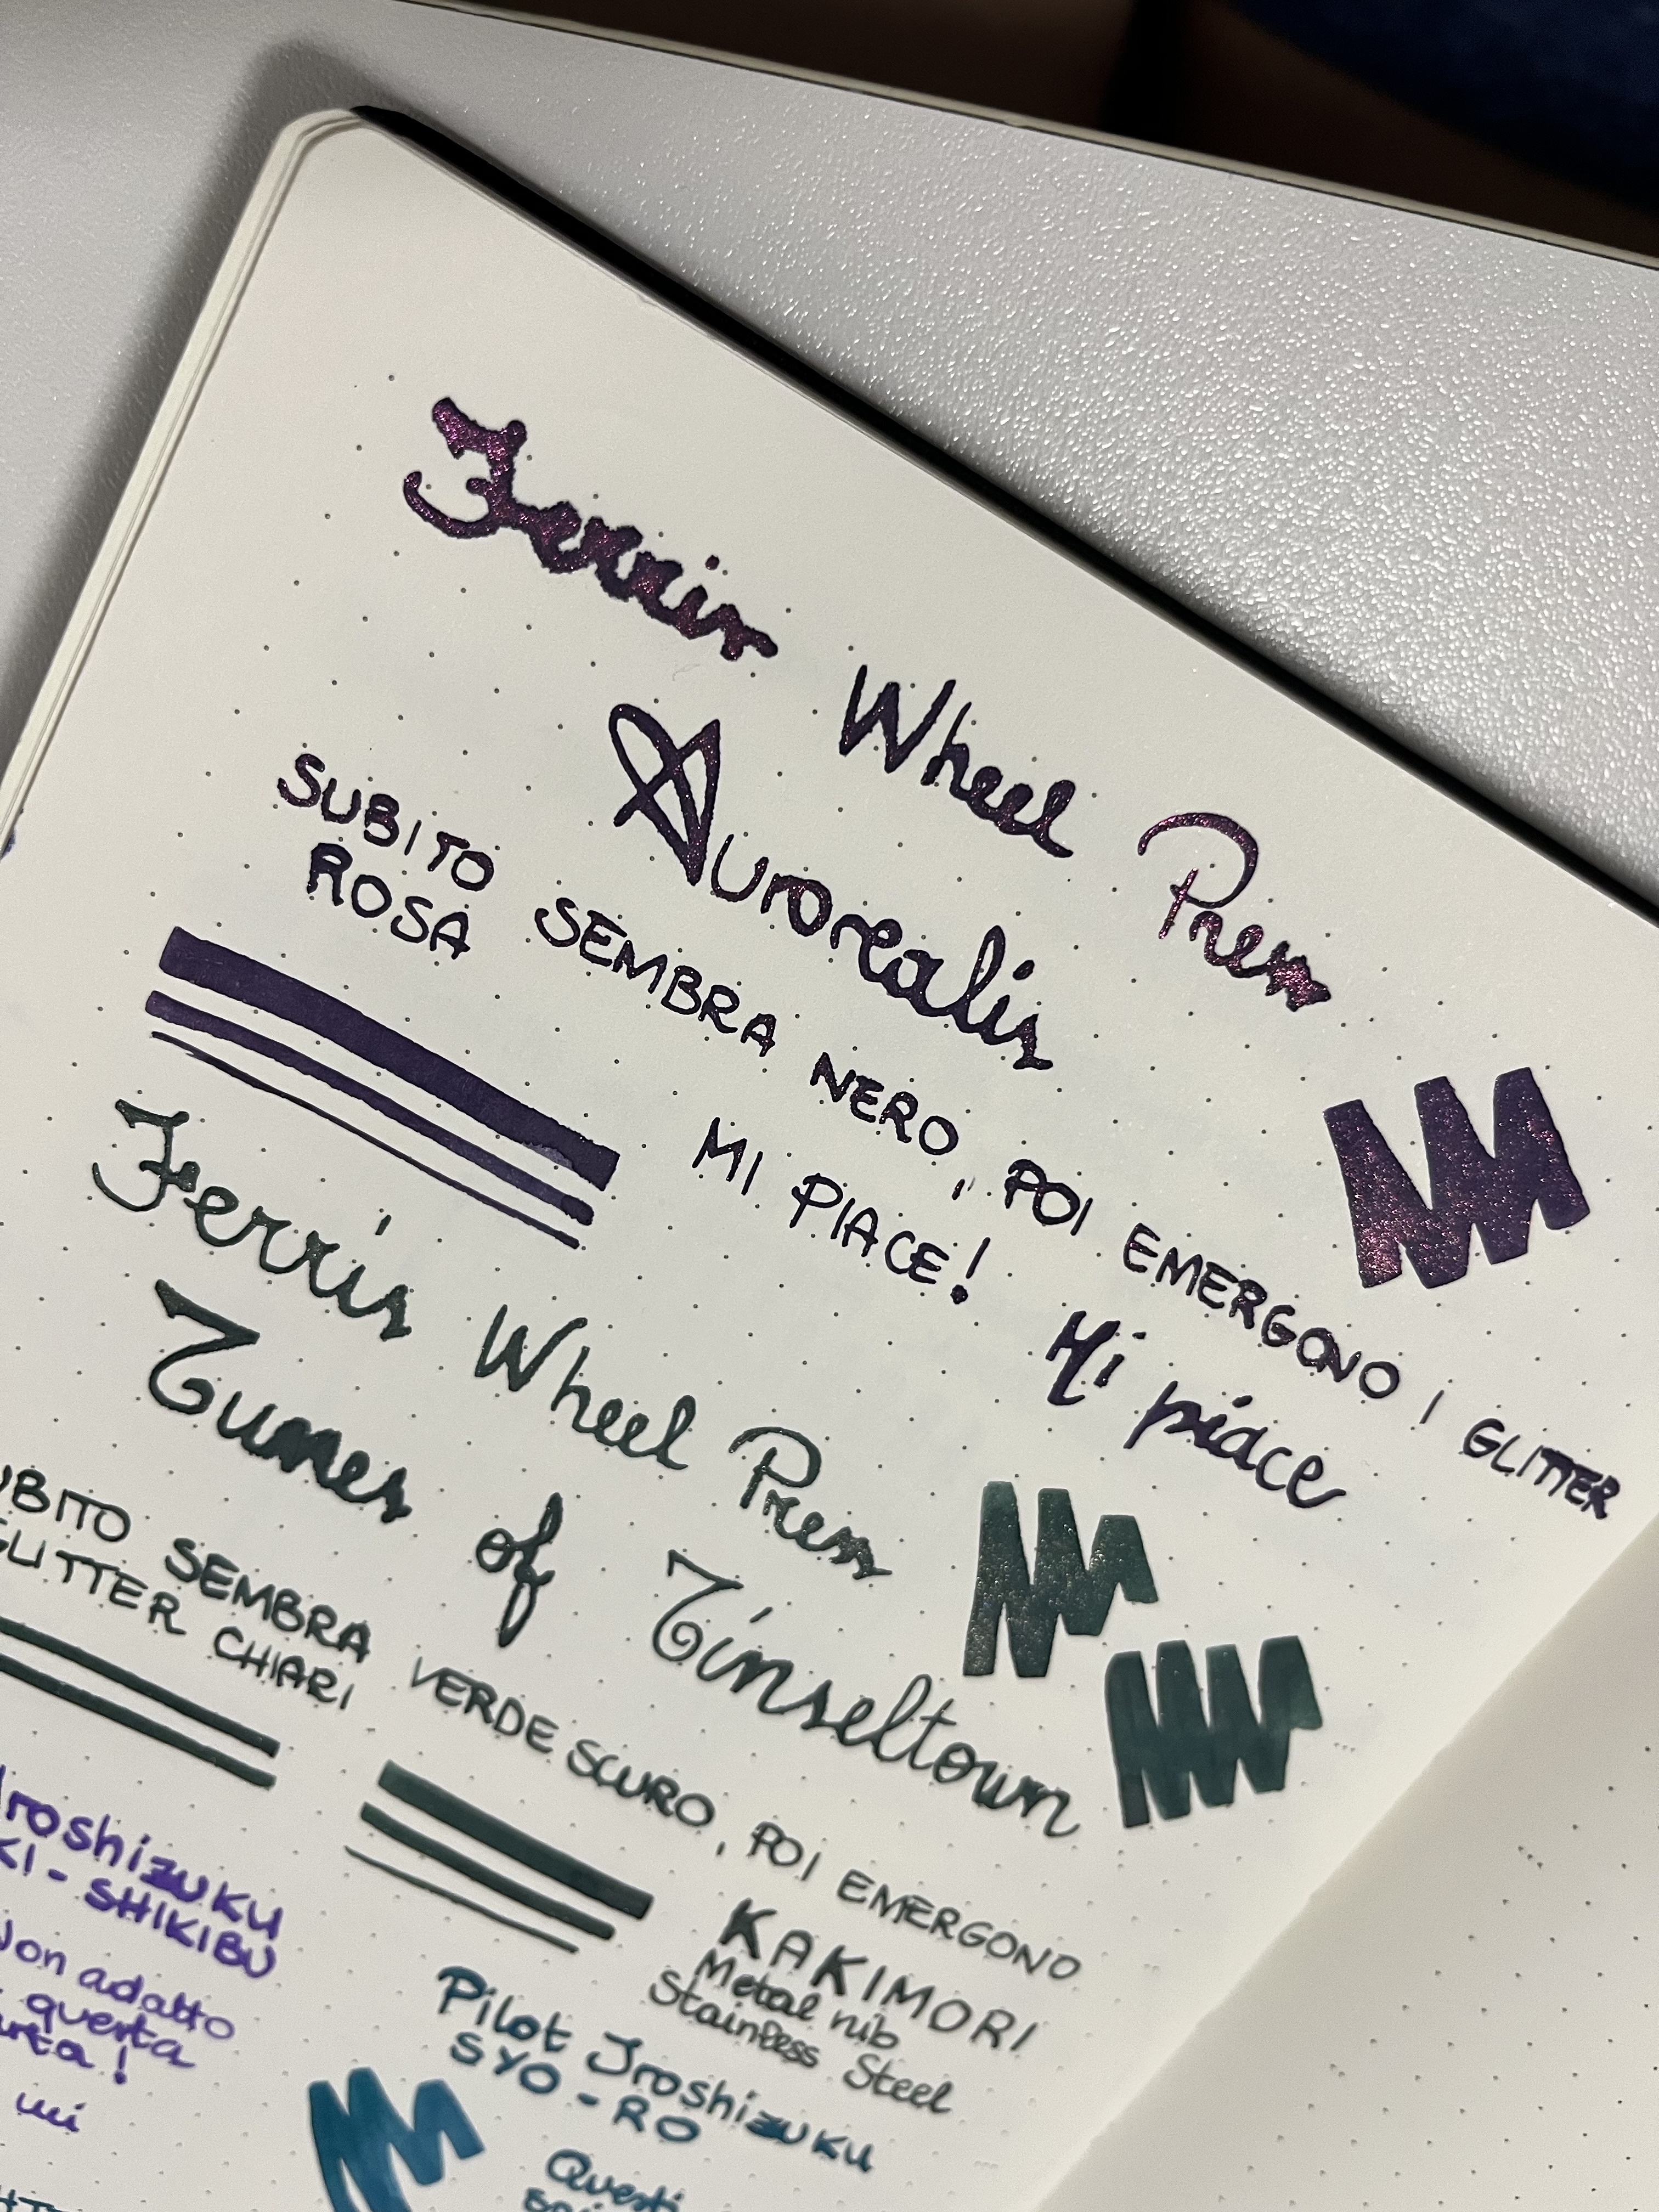 Ferris Wheel Press
Aurorealis
SUBITO SEMBRA NERO, POI EMERGONO I GLITTER
ROSA
MI PIACE! Mi piace
Ferris Wheel Press
Tunes of Tinseltown
UBITO SEMBRA VERDE SCURO, POI EMERGONO
GLITTER CHIARI
KAKIMORI
Metal nib
Stainless Steel
Iroshizuku
KI-SHIKIBU
Non adatto
questa
arta!
mi
Pilot Iroshizuku
SYO-RO
Questi